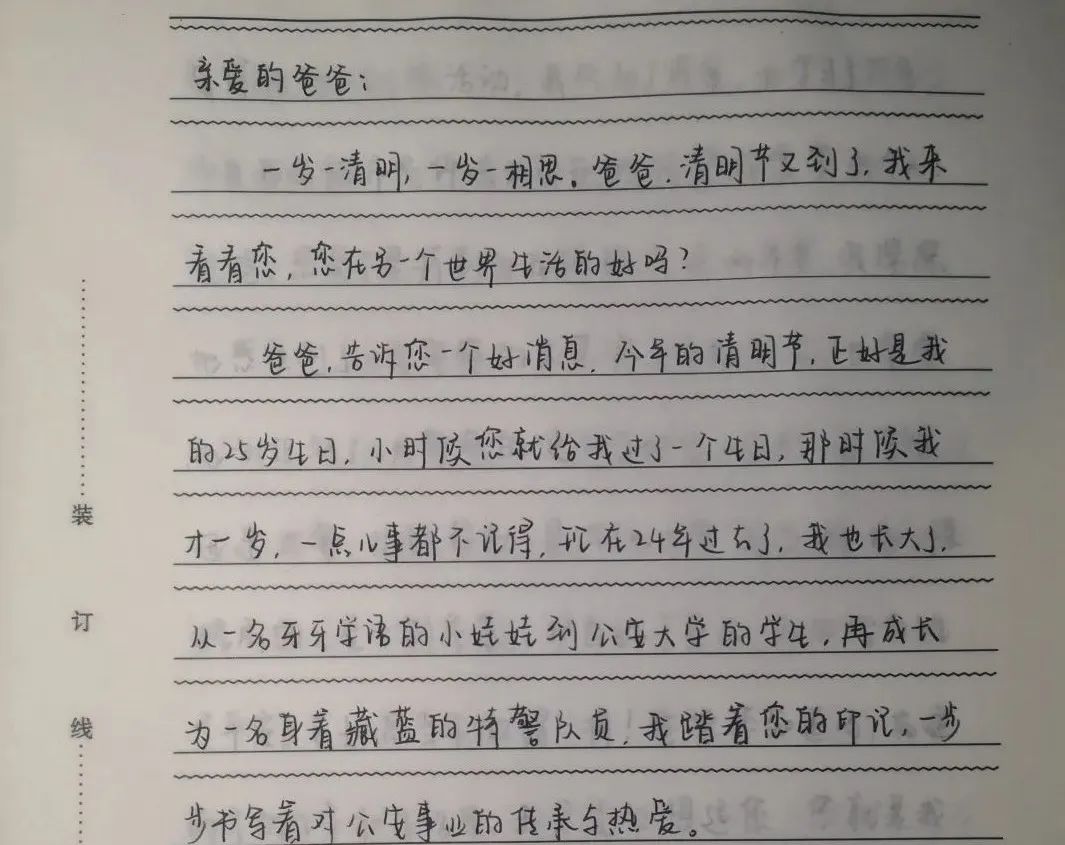 亲爱的爸爸：
一岁一清明，一岁一相思。爸爸，清明节又到了，我来
看看您，您在另一个世界生活的好吗？
爸爸，告诉您一个好消息，今年的清明节，正好是我
的25岁生日，小时候您就给我过了一个生日，那时候我
才一岁，一点儿事都不记得，现在24年过去了，我也长大了，
从一名牙牙学语的小娃娃到公安大学的学生，再成长
为一名身着藏蓝的特警队员，我踏着您的印记，一步
步书写着对公安事业的传承与热爱。
装
订
线